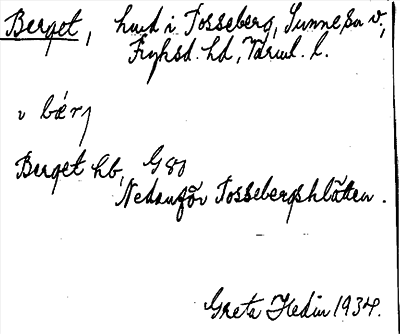 Berget, hmd i Tosseberg, Sunne sn v,
Fryksd. hd, Värml. l.
ı bærj
Berget hb, G 80
Nedanför Tossebergsklätten.
Greta Hedin 1934.